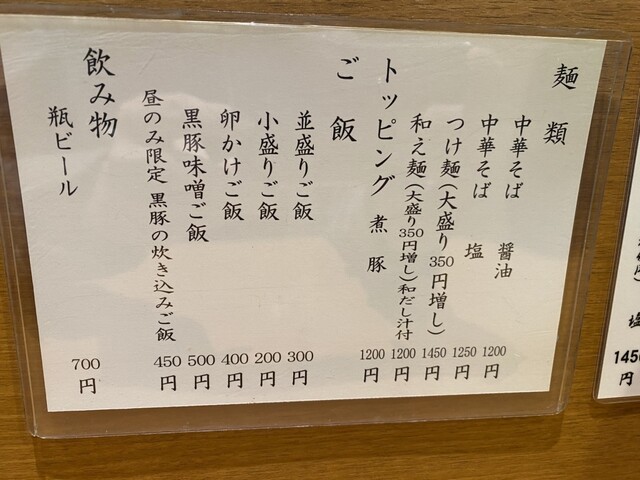 麺類
中華そば 醤油 1200円
中華そば 塩 1250円
つけ麺(大盛り350円増し) 1450円
和え麺(大盛り350円増し)和だし汁付 1200円
トッピング 煮豚 1200円
ご飯
並盛りご飯 300円
小盛りご飯 200円
卵かけご飯 400円
黒豚味噌ご飯 500円
昼のみ限定 黒豚の炊き込みご飯 450円
飲み物
瓶ビール 700円
塩
1450
円